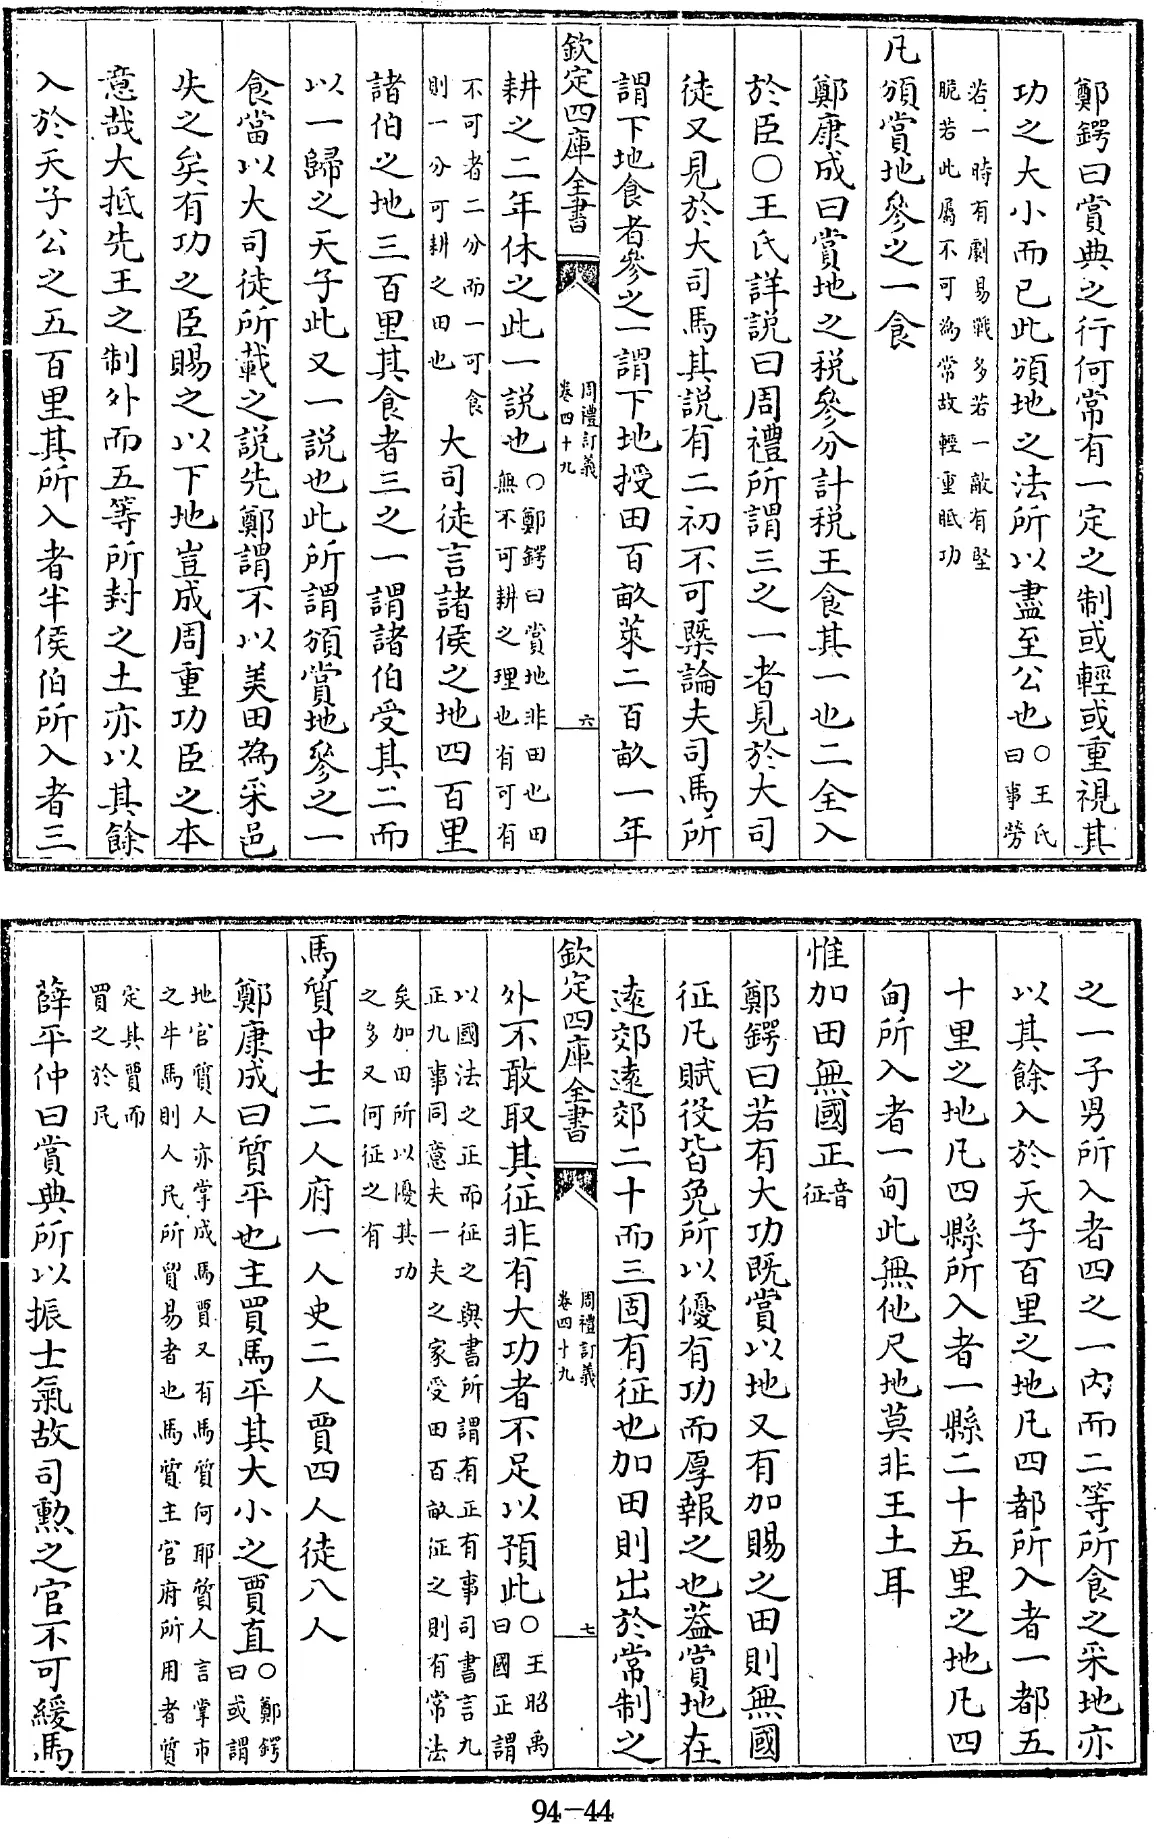 鄭鍔曰賞典之行何常有一定之制或輕或重視其
功之大小而已此頒地之法所以盡至公也○王氏曰事勞
若一時有劇易戰多若一敵有堅
脆若此屬不可為常故輕重眡功
凡頒賞地參之一食
鄭康成曰賞地之稅參分計稅王食其一也二全入
於臣○王氏詳說曰周禮所謂三之一者見於大司
徒又見於大司馬其說有二初不可槩論夫司馬所
謂下地食者參之一謂下地授田百畝萊二百畝一年
欽定四庫全書 周禮訂義 卷四十九 六
耕之二年休之此一說也○鄭鍔曰賞地非田也田無不可耕之理也有可有
不可者二分而一可食則一分可耕之田也大司徒言諸侯之地四百里
諸伯之地三百里其食者三之一謂諸伯受其二而
以一歸之天子此又一說也此所謂頒賞地參之一
食當以大司徒所載之說先鄭謂不以美田為采邑
失之矣有功之臣賜之以下地豈成周重功臣之本
意哉大抵先王之制外而五等所封之土亦以其餘
入於天子公之五百里其所入者半侯伯所入者三
之一子男所入者四之一內而二等所食之采地亦
以其餘入於天子百里之地凡四都所入者一都五
十里之地凡四縣所入者一縣二十五里之地凡四
甸所入者一甸此無他尺地莫非王土耳
惟加田無國正音征
鄭鍔曰若有大功既賞以地又有加賜之田則無國
征凡賦役皆免所以優有功而厚報之也蓋賞地在
遠郊遠郊二十而三固有征也加田則出於常制之
欽定四庫全書 周禮訂義 卷四十九 七
外不敢取其征非有大功者不足以預此○王昭禹曰國正謂
以國法之正而征之與書所謂有正有事司書言九
正九事同意夫一夫之家受田百畝征之則有常法
矣加田所以優其功
之多又何征之有
馬質中士二人府一人史二人賈四人徒八人
鄭康成曰質平也主買馬平其大小之賈直○鄭鍔曰或謂
地官質人亦掌成馬賈又有馬質何耶質人言掌市
之牛馬則人民所貿易者也馬質主官府所用者質
定其賈而
買之於民
薛平仲曰賞典所以振士氣故司勲之官不可緩馬
94-44